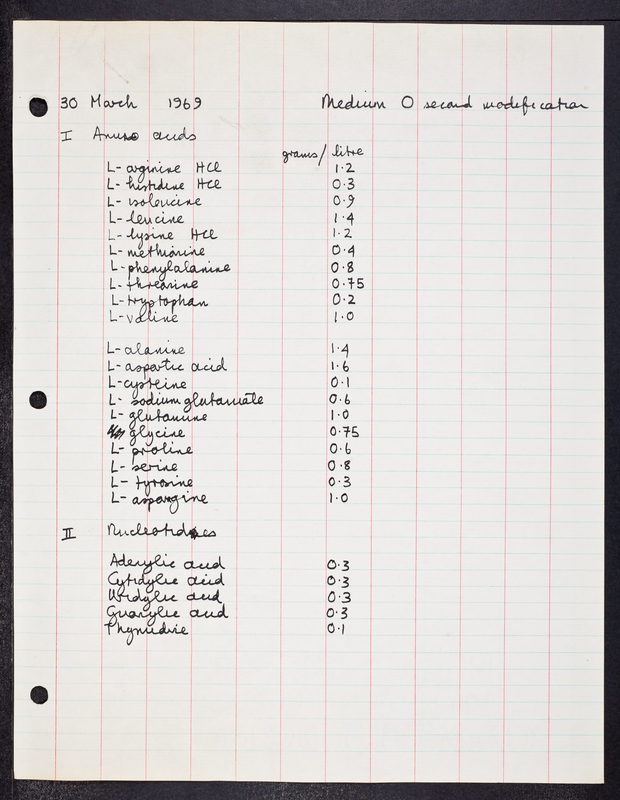 30 March 1969 Medium O second modification
I Amino acids
grams/litre
L-arginine HCl 1.2
L-histidine HCl 0.3
L-isoleucine 0.9
L-leucine 1.4
L-lysine HCl 1.2
L-methionine 0.4
L-phenylalanine 0.8
L-threonine 0.75
L-tryptophan 0.2
L-valine 1.0
L-alanine 1.4
L-aspartic acid 1.6
L-cysteine 0.1
L-sodium glutamate 0.6
L-glutamine 1.0
glycine 0.75
L-proline 0.6
L-serine 0.8
L-tyrosine 0.3
L-aspargine 1.0
II Nucleotides
Adenylic acid 0.3
Cytidylic acid 0.3
Uridylic acid 0.3
Guanylic acid 0.3
Thymidine 0.1